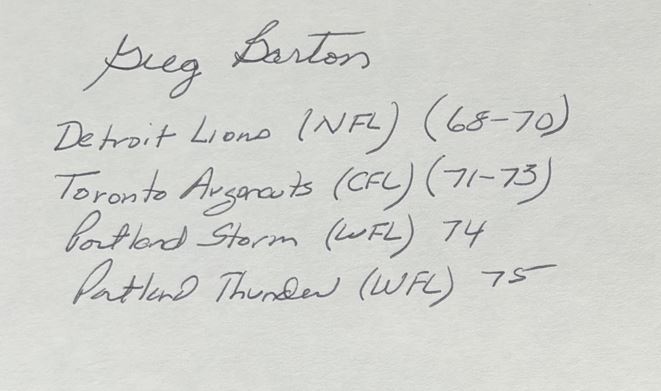 Greg Barton
Detroit Lions (NFL) (68-70)
Toronto Argonauts (CFL) (71-73)
Portland Storm (WFL) 74
Portland Thunder (WFL) 75